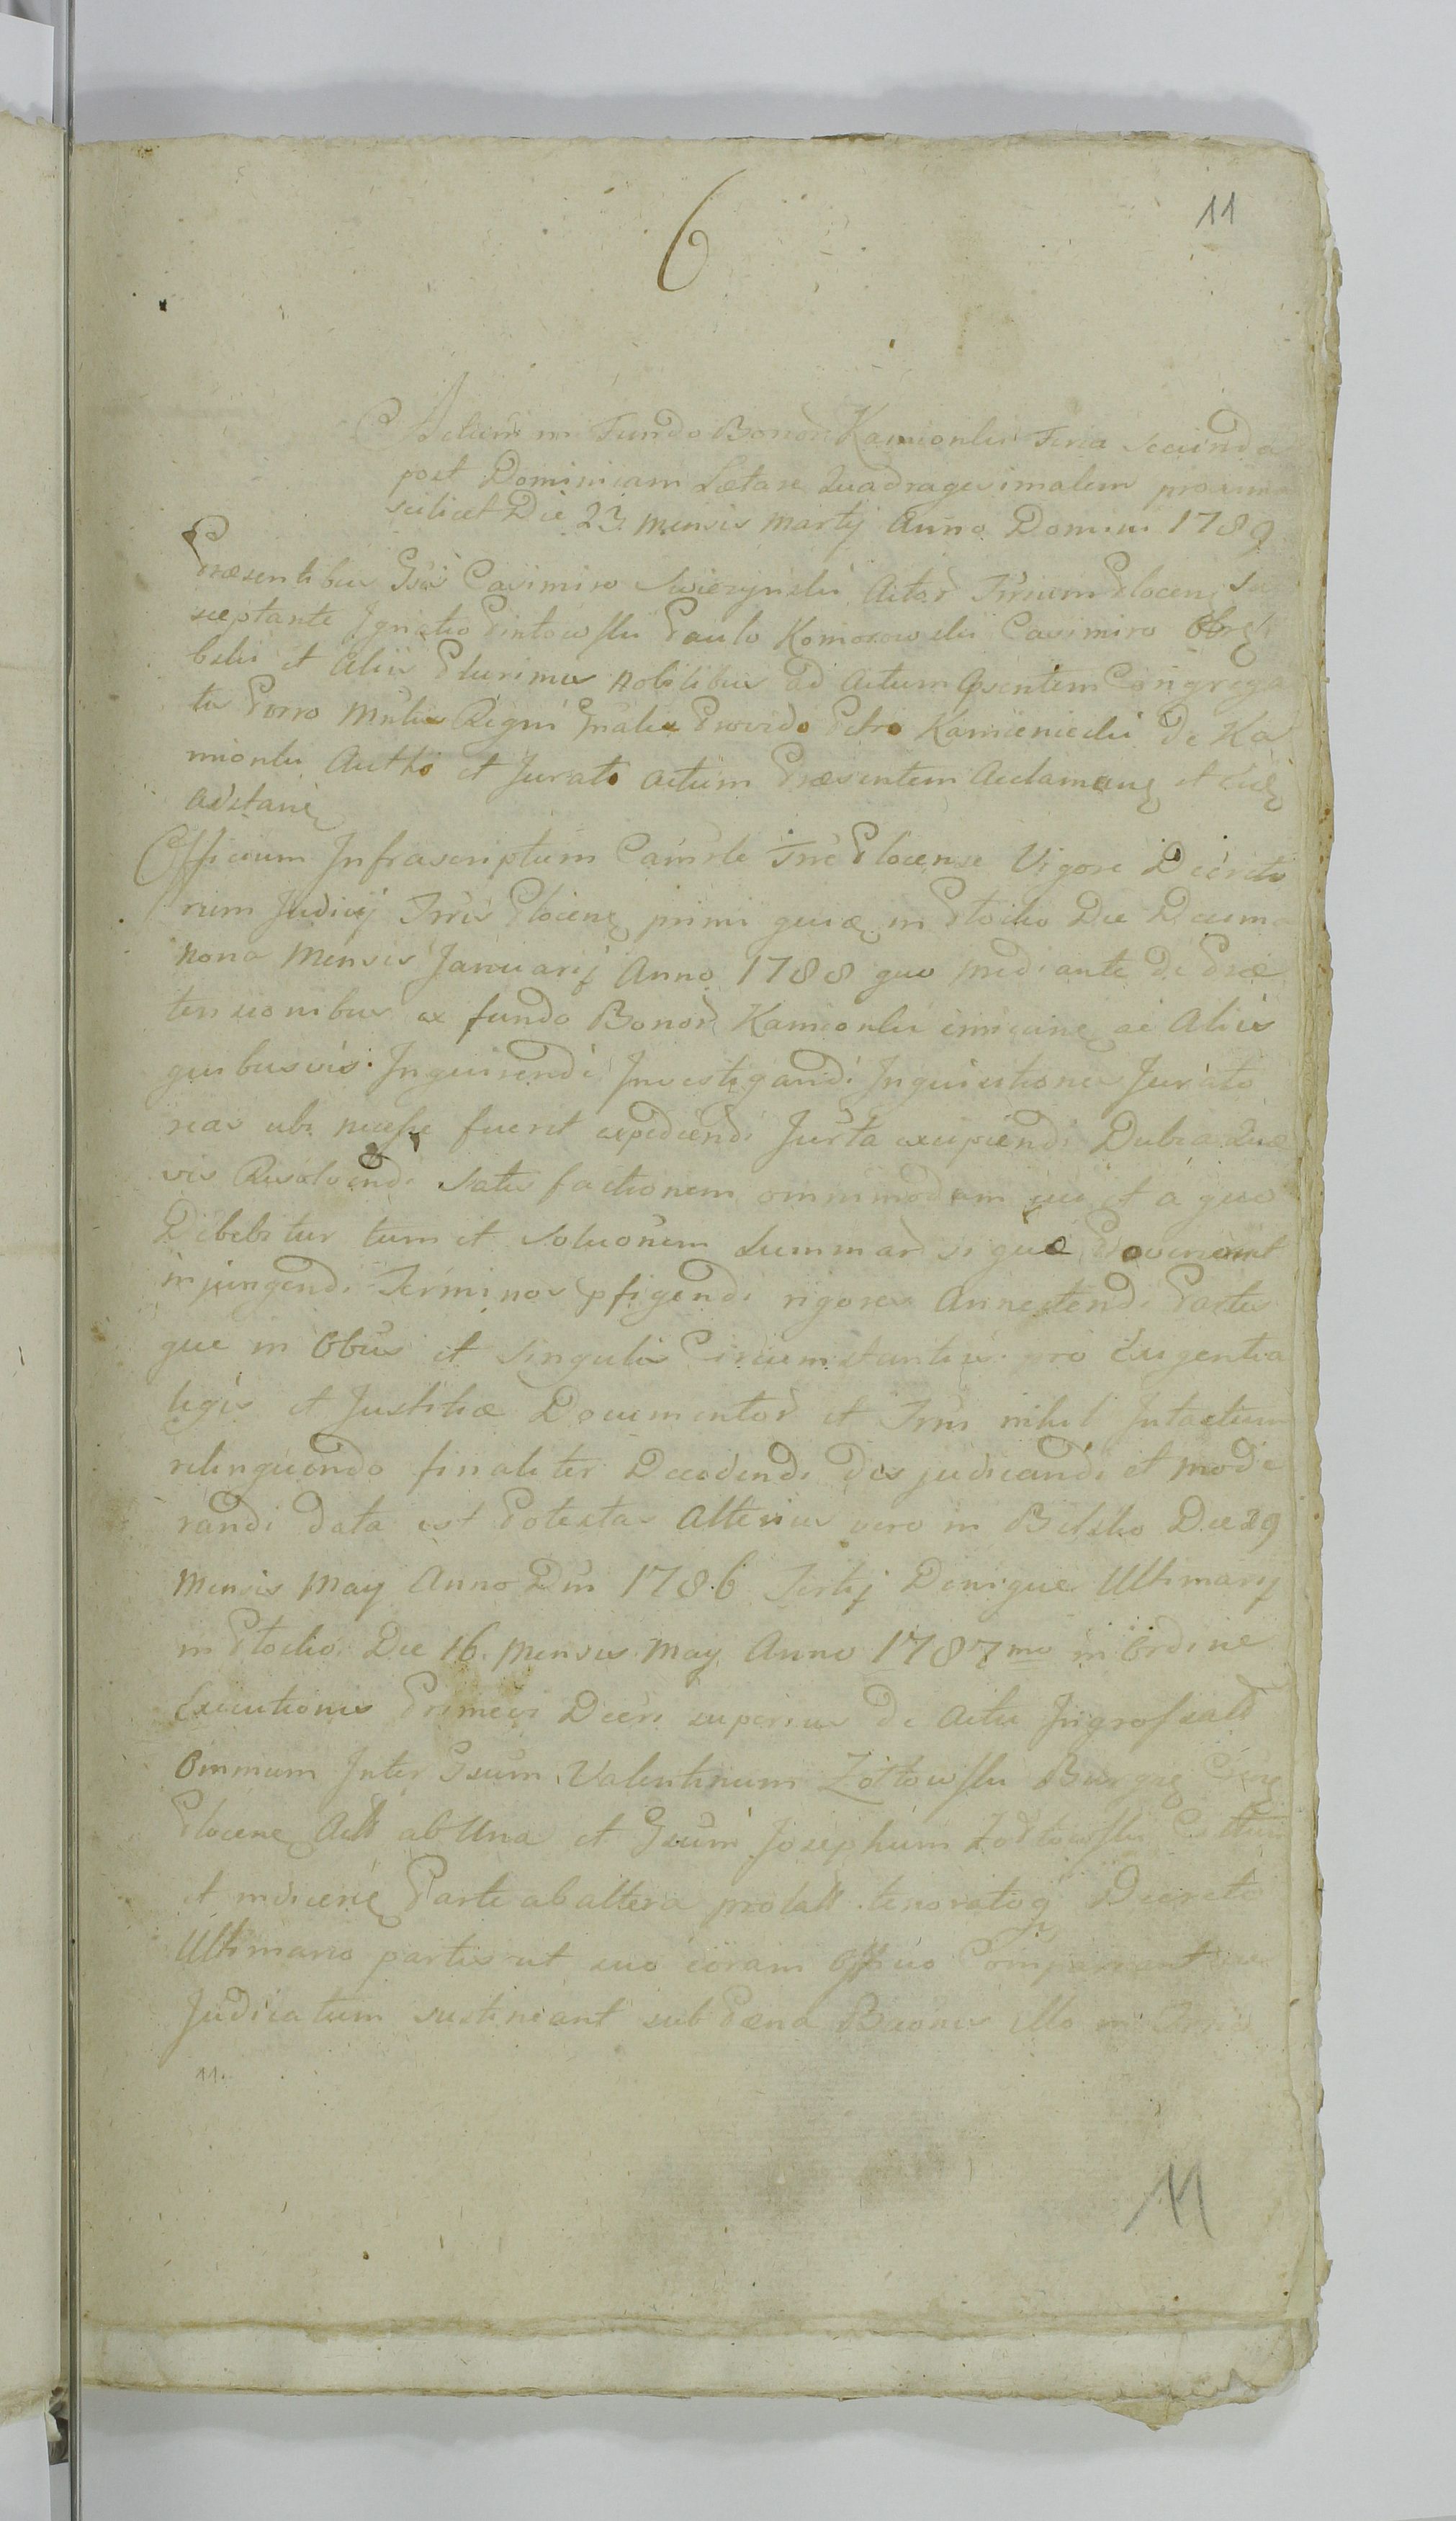 11
6
Actum in Fundo Bonor Kamionki Feria Secunda
post Dominicam Lætare Quadragesimalem proxima
scilicet Die 23 mensis Martij Anno Domini 1789
Præsentibus Gsis Casimiro Swiezynski Actor Trium Plocen Su
sceptante Ignatio Pintowski Paulo Komorowski Casimiro
bski et Aliis Plurimis Nobilibus ad Actum Psentem Congrega
tis Porro Mnlis Regni Gnalis Provido Petro Kamieniecki De Ka
mionki Autho et Jurato Actum Præsentem Acclaman et
adstane
Officium Infrascriptum Camrle Trre Plocense Vigore Decreto
rum Judicij Trris Plocens primi quis in Plocko Die Decima
nona Mensis Januarij Anno 1788 quo mediante de Præ
tensionibus ex fundo Bonor Kamionki ac Aliis
quibusvis Inquirendi Investigandi Inquisitiones Jurato
rias ubi necesse fuerit expediendi Jurta excipiendi Dubia Quæ
vis Resolvendi Satisfactionem ommimodam cui et a quo
Debebitur tum et Solutionem Summar si quæ Provenient
injungendi Terminos pfigendi rigores Annectendi Partes
que in Obus et Singulis Circumstantiis pro Exigentia
legis et Justitiæ Documentor et Trris nihil Intactum
relinquendo finaliter Decidendi disjudicandi et mode
randi data est Potestas Alterius vero in Bielsko Die 29
Mensis May Anno Dni 1786 Tertij Denique Ultimarij
in Plocko Die 16 Mensis May Anno 1787mo in Ordine
Executionis Primevi Decri superius de Actu Ingrossatt
Omnium Inter Gsum Valentinum Zółtowski Burgr
Plocens Act ab Una et Gsum Josephum Zółtowski
et Parte ab altera prolatt tenoratoq Decreto
Ultimario partes ut suo coram Officio Compareant
Judicatum sustineant sub Pæna Baonis illo in
11.
11